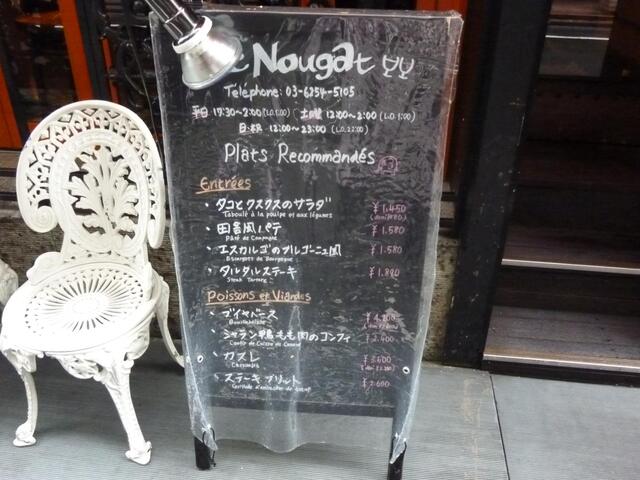 Nougat
Téléphone: 03-6254-5105
平日 17:30~2:00 (L.O. 1:00) 土曜 12:00~2:00 (L.O. 1:00)
日・祝 12:00~23:00 (L.O. 22:00)
Plats Recommandés
Entrées
・タコとクスクスのサラダ ¥1,450
Taboulé à la poulpe et aux légumes
・田舎風パテ ¥1,580
Pâté de Campagne
・エスカルゴのブルゴーニュ風 ¥1,580
Escargots de Bourgogne
・タルタルステーキ ¥1,880
Steak Tartare
Poissons et Viandes
・ブイヤベース
Bouillabaisse
・シャラン鴨もも肉のコンフィ ¥2,400
Confit de Cuisse de Canard
・カスレ ¥3,600
Cassoulet
・ステーキフリット ¥2,600